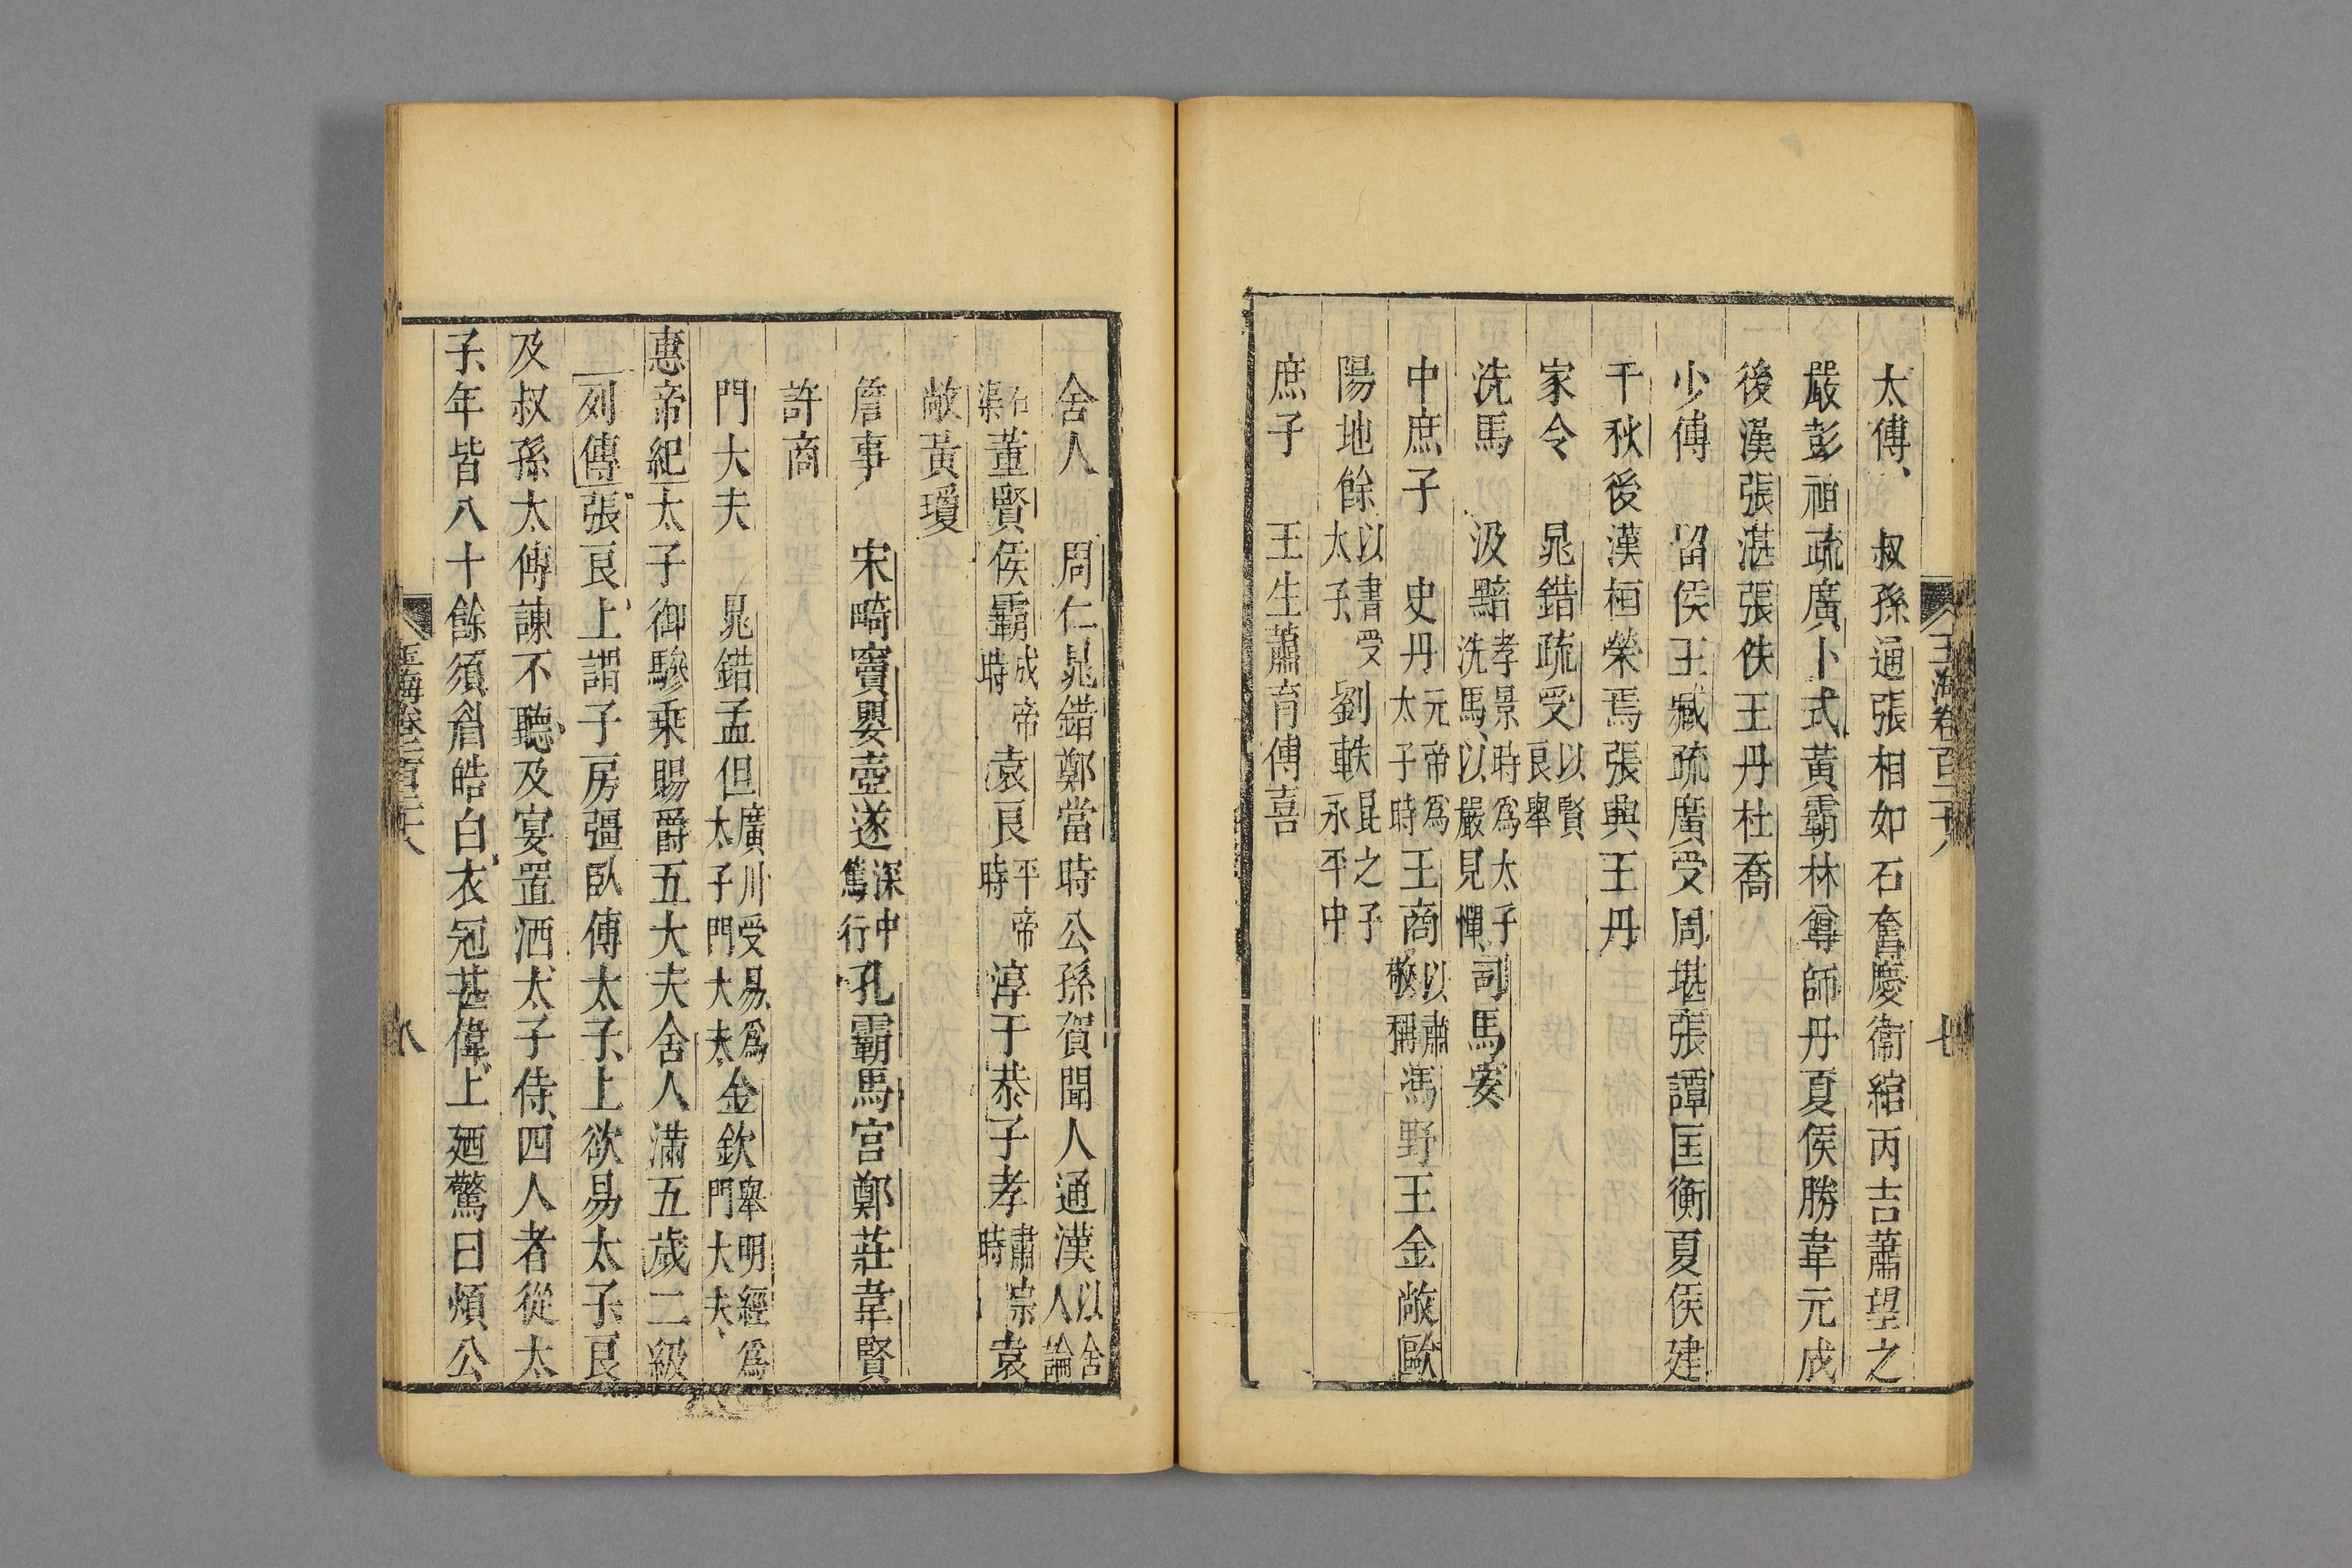 玉海卷百二十八 七
太傅 叔孫通張相如石奮慶衞綰丙吉蕭望之
嚴彭祖疏廣卜式黃霸林尊師丹夏侯勝韋元成
後漢張湛張佚王丹杜喬
少傅 留侯王臧疏廣受周堪張譚匡衡夏侯建
千秋後漢桓榮焉張興王丹
家令 晁錯疏受以賢良舉
洗馬 汲黯孝景時爲太子洗馬以嚴見憚司馬安
中庶子 史丹元帝爲太子時王商以肅敬稱馮野王金敞歐
陽地餘以書受太子劉軼昆之子永平中
庶子 王生蕭育傅喜
舍人 周仁晁錯鄭當時公孫賀聞人通漢以舍人論
石渠董賢侯霸成帝時袁良平帝時淳于恭子孝肅宗時袁
敞黃瓊
詹事 宋畸竇嬰壺遂深中篤行孔霸馬宮鄭莊韋賢
許商
門大夫 晁錯孟但廣川受易爲太子門大夫金欽舉明經爲門大夫
惠帝紀太子御驂乘賜爵五大夫舍人滿五歲二級
列傳張良上謂子房彊臥傅太子上欲易太子良
及叔孫太傅諫不聽及宴置酒太子侍四人者從太
子年皆八十餘須眉皓白衣冠甚偉上廼驚曰煩公
八